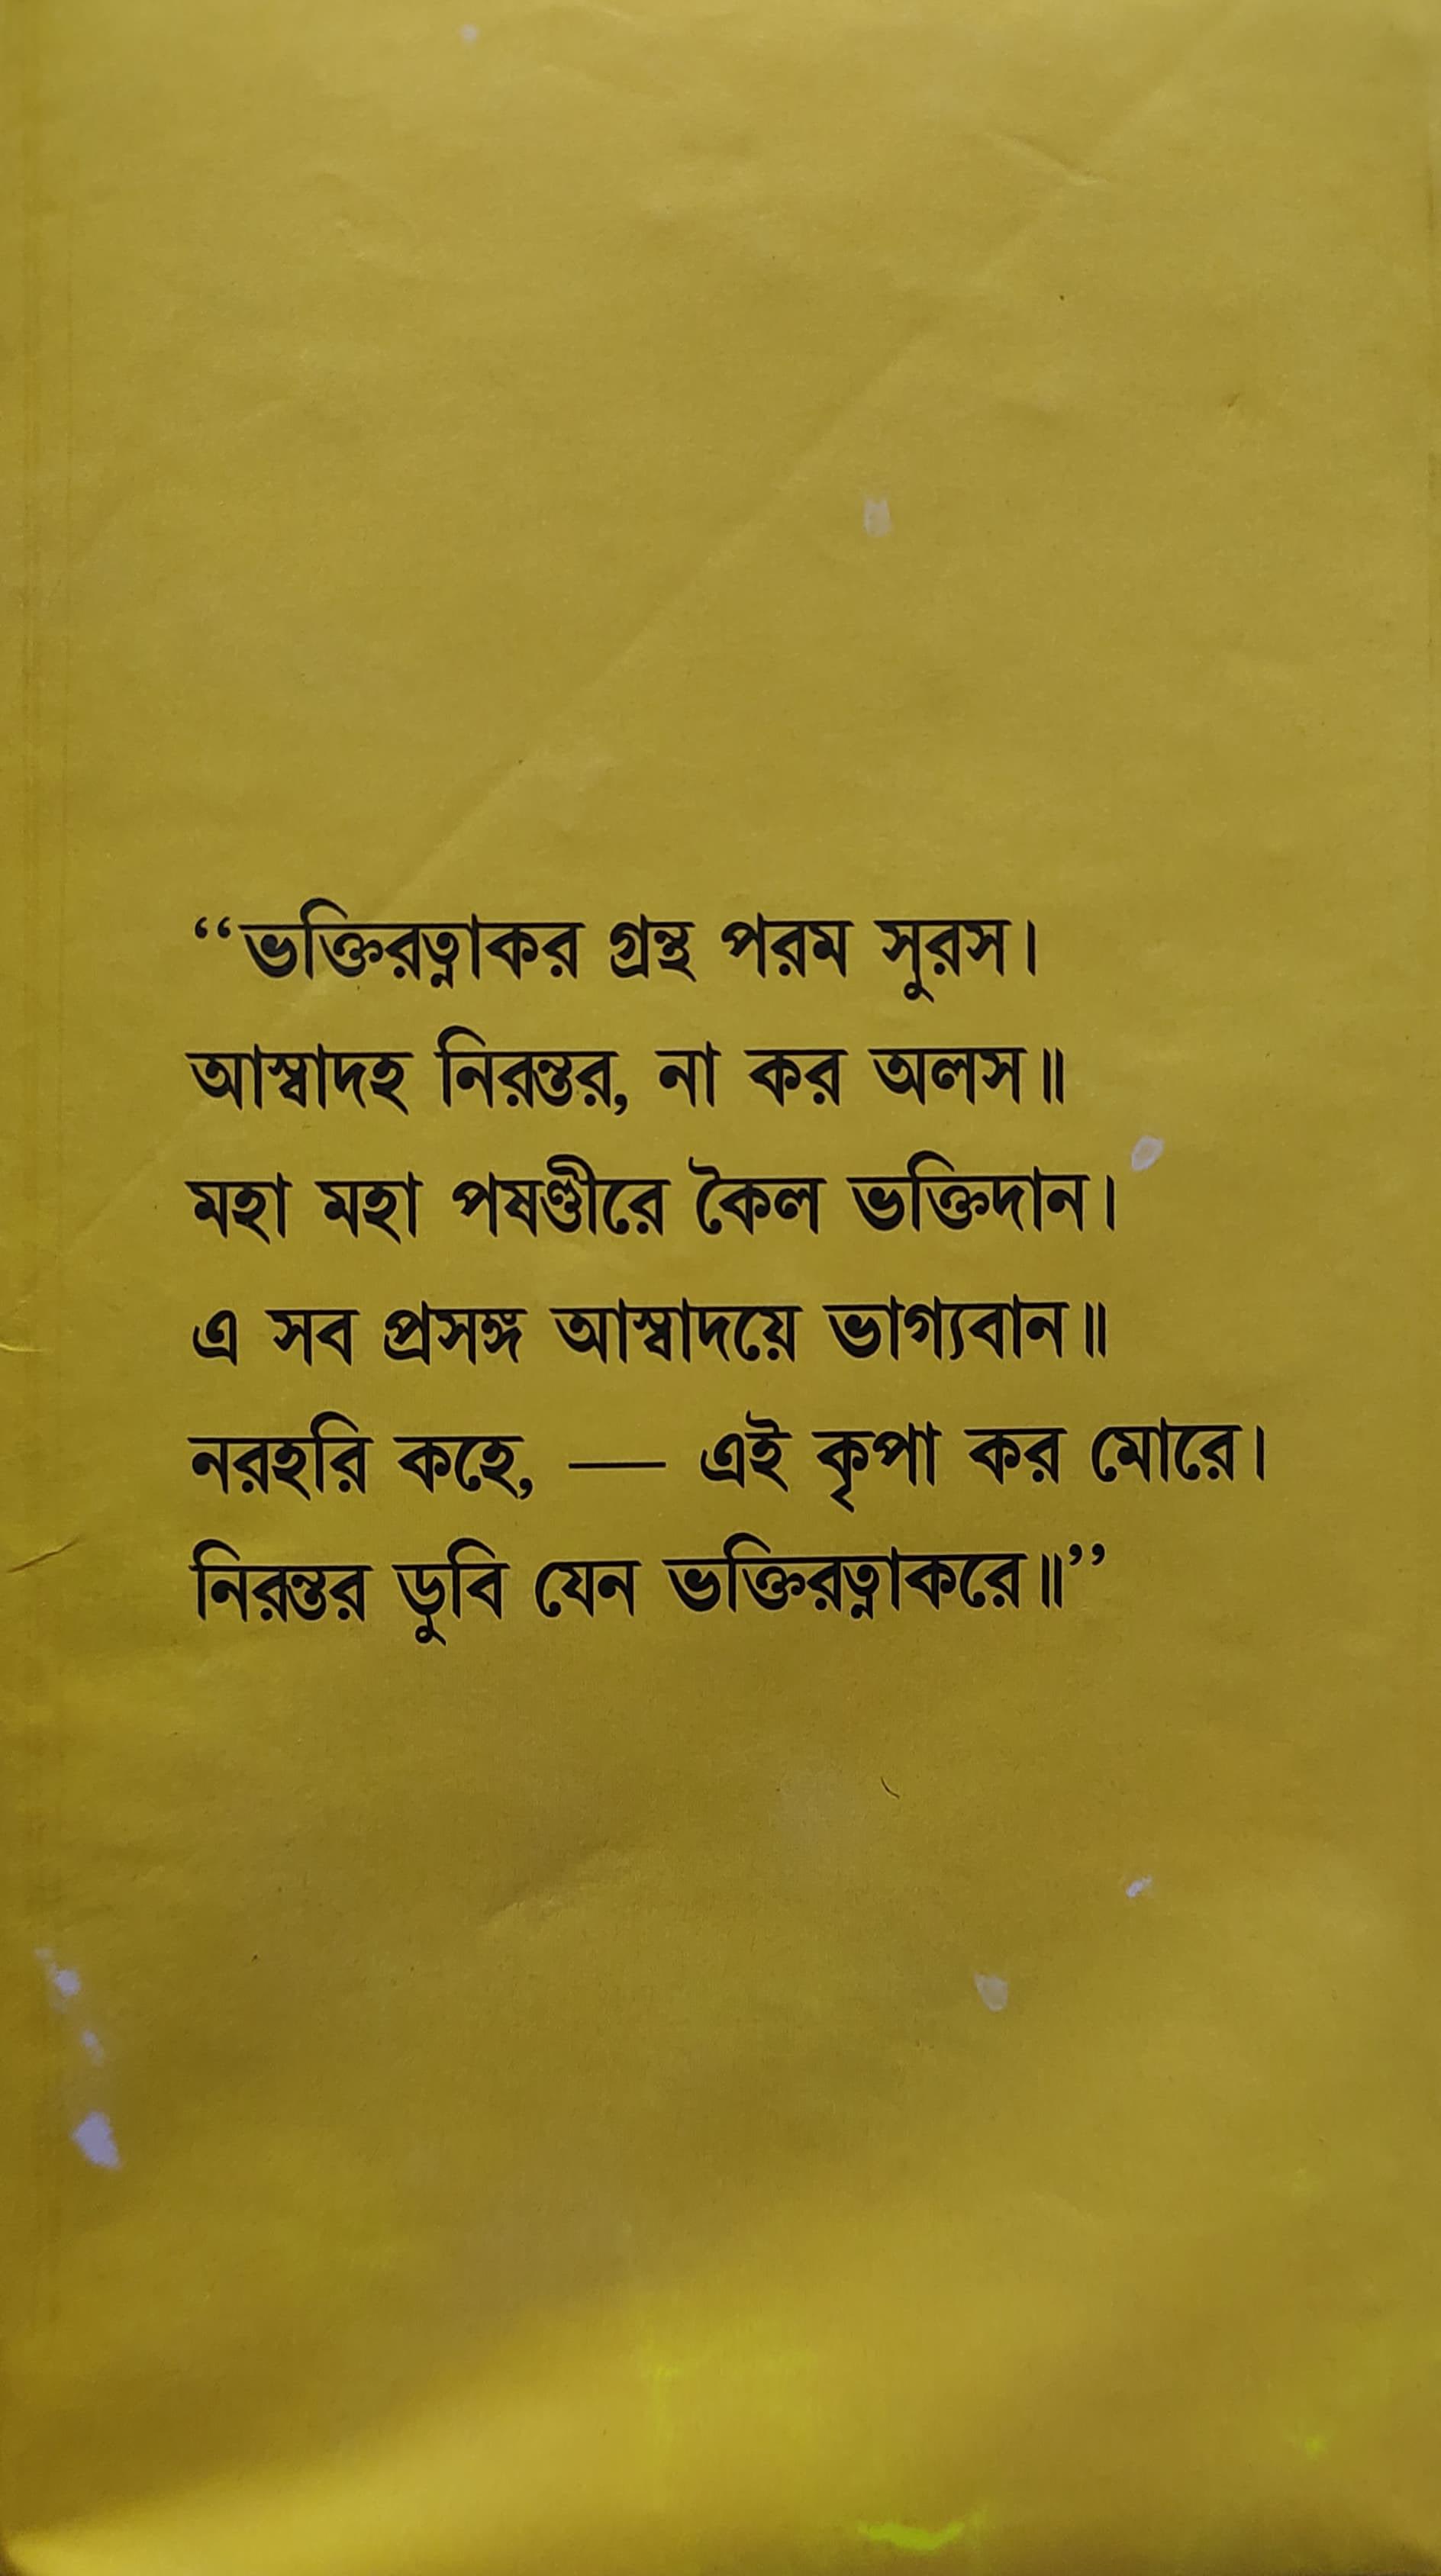 “ভক্তিরত্নাকর গ্রন্থ পরম সুরস।
আস্বাদহ নিরন্তর, না কর অলস॥
মহা মহা পষণ্ডীরে কৈল ভক্তিদান।
এ সব প্রসঙ্গ আস্বাদয়ে ভাগ্যবান॥
নরহরি কহে, — এই কৃপা কর মোরে।
নিরন্তর ডুবি যেন ভক্তিরত্নাকরে॥”